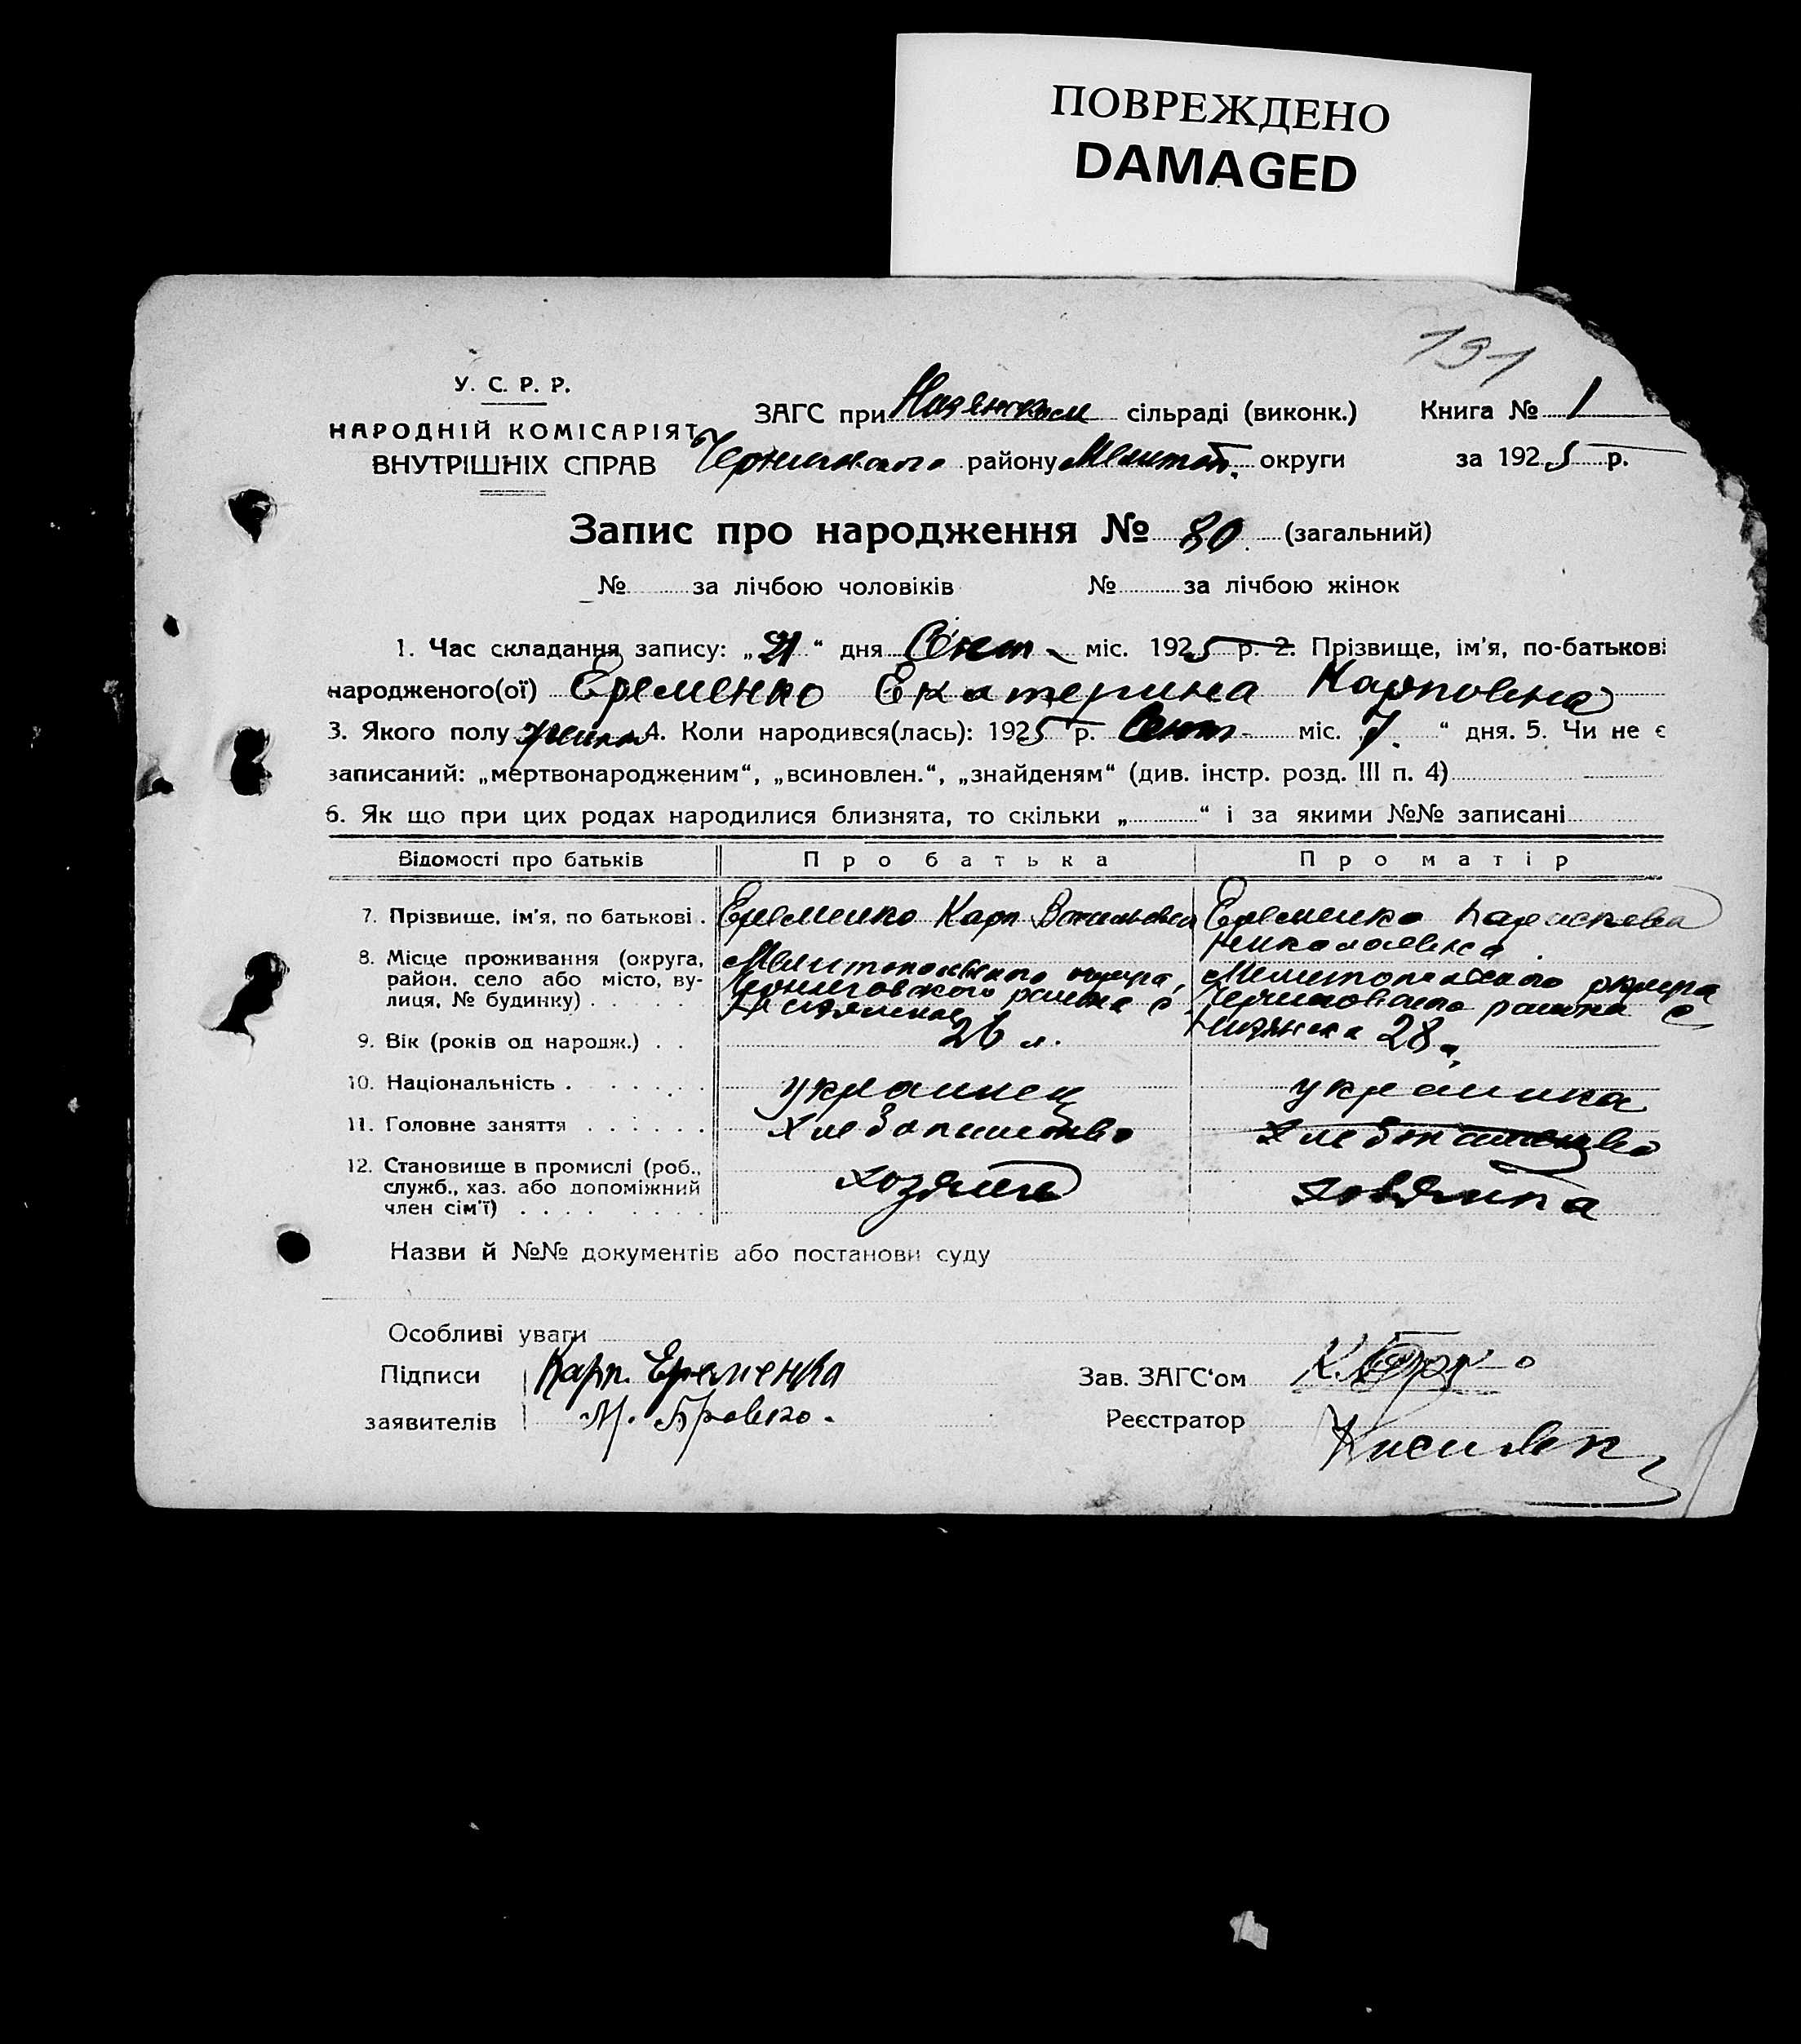 ПОВРЕЖДЕНО
DAMAGED
191
У. С. Р. Р.
НАРОДНІЙ КОМІСАРІЯТ
ВНУТРІШНІХ СПРАВ
ЗАГС при сільраді (виконк.) Книга № 1
Черниговского району Мелитоп. округи за 1925 р.
Запис про народження № 80. (загальний)
№ за лічбою чоловіків № за лічбою жінок
1. Час складання запису: „21“ дня Сент міс. 1925 р. 2. Прізвище, ім'я, по-батькові
народженого(ої) Еременко Екатерина Карповна
3. Якого полу 4. Коли народився(лась): 1925 р. Сент міс. 7. “ дня. 5. Чи не є
записаний: „мертвонародженим“, „всиновлен.“, „знайденям“ (див. інстр. розд. III п. 4)
6. Як що при цих родах народилися близнята, то скільки „ “ і за якими №№ записані
Відомості про батьків Про батька Про матір
7. Прізвище, ім'я, по батькові . Еременко Карп Васильевич Еременко Параскева
Николаевна
8. Місце проживання (округа, район, село або місто, вулиця, № будинку) . . . . . Мелитопольского округа, Черниговского района с. Мелитопольского округа Черниговского района с
9. Вік (років од народж.) . . 26 л. 28 л.
10. Національність . . . . . . украинец украинка
11. Головне заняття . . . . . . Хлебопашество Хлебопашество
12. Становище в промислі (роб., служб., хаз. або допоміжний член сім'ї) . . . . . . . . хозяин хозяйка
Назви й №№ документів або постанови суду
Особливі уваги
Підписи Карп. Еременко Зав. ЗАГС'ом
заявителів М. Бровко. Реєстратор